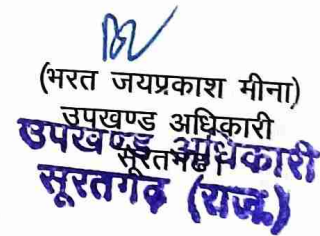 (भरत जयप्रकाश मीना)
उपखण्ड अधिकारी
उपखण्ड अधिकारी
सूरतगढ़ (राज.)